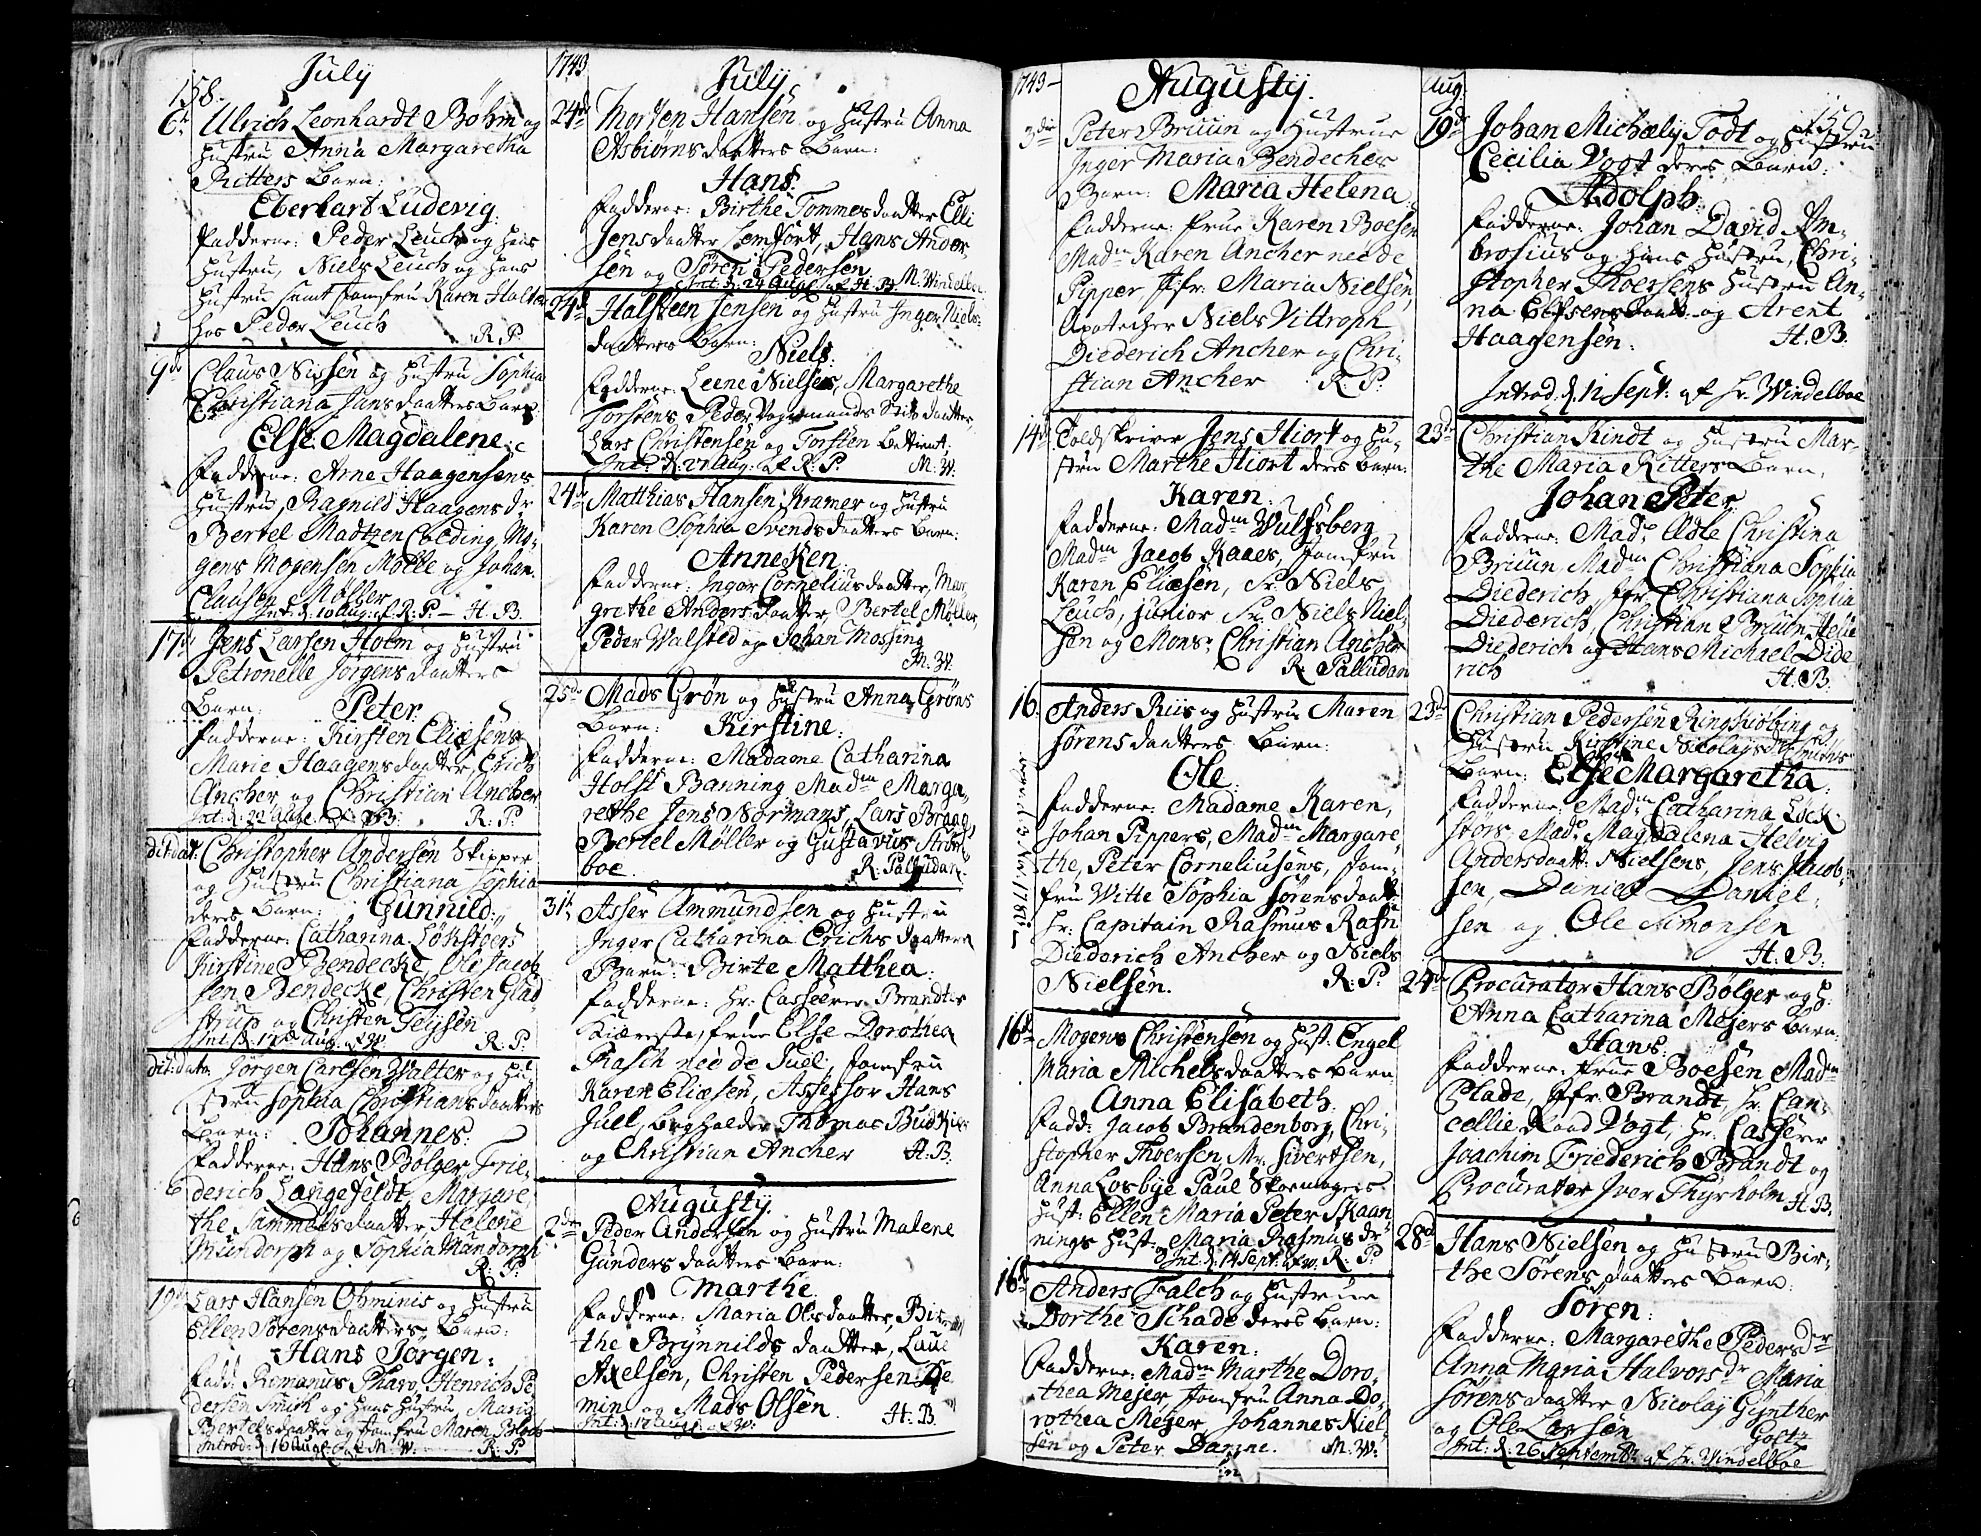 158.
July
6t Ulrich Leonhardt Böhm og
Hustru Anna Margaretha
Ritters Barn:
Eberhart Ludevig.
Fadderne: Peder Leuch og hans
Hustru, Niels Leuch og hans
Hustru samt Jomfru Karen Holter
hos Peder Leuch R. P.
9de Claus Nissen og Hustru Sophia
Christiana Jansdaatters Barn
Else Magdalene:
Fadderne: Arne Haagensens
Hustru, Ragnild Haagens dr
Bertel Madtzen Colding Mo-
gens Mogensen Molle og Johan
Clausen Møller
Int. d. 10 Aug. af R. P. — H. B.
17de Jens Larsen Holm og Hustru
Petronelle Jörgensdaatters
Barn: Peter.
Fadderne: Kirsten Eliæsens
Marie Haagensdaatter, Erich
Ancher og Christian Ancher
Int. d. 22 Aug. af H. B. R. P.
dit: dat: Christopher Andersen Skipper
og Hustru Christiana Sophia
deres Barn: Gunnild:
Fadderne: Catharina Lökstöers
Kirstine Bendecke, Ole Jacob
sen Bendecke, Christen Glad
strup og Christen Teijsen
Int. d. 17de Aug. af W. R. P.
dit: dato Jörgen Carlsen Walter og Hu
stru Sophia Christiansdaatters
Barn: Johannes:
Fadderne: Hans Bölger Frie-
derich Langefeldt, Margare-
the Sammelsdaatter Helene
Mundorph og Sophia Mundorph
R. P.
19de Lars Hansen Ohminis og Hustru
Ellen Sörensdaatters Barn:
Hans Jorgen:
Fadd: Romanus Pharo, Henrich Pe-
dersen Smith og hans Hustru Maria
Bertelsdaatter og Jomfru Maren Bloch
Introd. d. 16 Aug. af M. W. R. P.
1743 July
24de Morten Hansen og Hustru Anna
Asbiörnsdaatters Barn:
Hans:
Fadderne: Birthe Tommesdaatter Elli
Jensdaatter Lemfort, Hans Ander-
sen og Sören Pedersen
Int. d. 24 Aug. af H. B. M. Windelboe
24de Halsteen Jensen og Hustru Inger Niels-
daatters Barn: Niels:
Fadderne: Leene Nielses, Margarethe
Torstens, Peder Vognmands daatter
Lars Christensen og Torsten Betient,
Int. d. 27 Aug. af R. P. M. W.
24de Matthias Hansen Kramer og Hustru
Karen Sophia Svendsdaatters Barn:
Anneken:
Fadderne: Inger Corneliusdaatter, Mar
grethe Andersdaatter, Bertel Møller,
Peder Walsted og Johan Mossing
M. W.
25de Mads Grön og Hustru Anna Gröns
Barn: Kirstine:
Fadderne: Madame Catharina
Holst Banning Madm Marga-
rethe Jens Normans, Lars Braag
Bertel Møller og Gustavius Stribol
boe. R. Palludan.
31te Asser Ammundsen og Hustru
Inger Catharina Erichsdaatters
Barn: Birte Matthea.
Fadderne: Hr. Casseerer Brandt's
Kiæreste, frue Else Dorothea
Rasch neé de Juel, Jomfru
Karen Eliæsen, Assessor Hans
Juel, Bogholder Thomas Budkier
og Christian Ancher H. B.
Augusty.
2den Peder Andersen og Hustru Malene
Gundersdaatters Barn:
Marthe
Fadderne: Maria Olsdaatter, Bir
the Brynnilds daatter, Laue
Axelsen, Christen Pedersen De
min og Mads Olsen.
Int. d. 17 Aug. af W. H. B.
1743 — Augusty.
3die Peter Bruun og Hustrue
Inger Maria Bendeches
Barn: Maria Helena.
Fadderne: Frue Karen Boesen
Madm Karen Ancher neé de
Pipper Jfr. Maria Nielsen,
Apotecher Niels Vittroph
Diederich Ancher og Chri-
stian Ancher R. P.
14de Toldskriver Jens Hiort og Hu-
stru Marthe Hiort deres Barn:
Karen:
Fadderne: Madm Wulfsberg
Madm Jacob Kaaes, Jomfru
Karen Eliæsen, Sr. Niels
Leuch, junior Sr. Niels Niel-
sen og Monsr Christian Ancher
R. Palludan
16. Anders Riis og Hustru Maren
Sörensdaatters Barn:
Ole
Fadderne: Madame Karen,
Johan Pippers, Madm Margare
the, Peter Corneliusens, Jom-
fru Witte Sophia Sörensdaatt
Hr. Capitain Rasmus Rafn
Diederich Ancher og Niels
Nielsen. R. P.
16de Mogens Christensen og Hust. Engel
Maria Michelsdaatters Barn
Anna Elisabeth.
Fadd: Jacob Brandenborg, Chri-
stopher Thoersen, Mr. Sivertsen,
Anna Losbye Paul Skoemagers
Hust: Ellen Maria Peter Skaan-
nings Hust. og Maria Rasmus dr
Int. d. 14 Sept. af W. R. P.
16de Anders Falch og Hustrue
Dorthe Schade deres Barn:
Karen.
Fadderne: Madm Marthe Doro-
thea Mejer Jomfru Anna Do-
rothea Mejer Johannes Niel-
sen og Peter Damne. M. W.
Aug. 159.
19de Johan Michæly Todt og Hustru
Cecilia Vogt deres Barn:
Adolph.
Fadderne: Johan David Am-
brosius og hans Hustru, Chri-
stopher Thoersens Hustru An-
na Elefsens daatt. og Arent
Haagensen. H. B.
Introd. d. 12 Sept. af Hr. Windelboe
23de Christian Kindt og Hustru Mar-
the Maria Ritters Barn.
Johan Peter
Fadderne: Made Adle Christina
Bruun, Madm Christiana Sophia
Diederich, Jfr. Christiana Sophia
Diederich, Christian Bruun Helle
Diederich og Hans Michael Dide
rich H. B.
23de Christian Pedersen Ringskiöbing og
Hustru Kirstine Nicolajsdatters
Barn: Else Margaretha.
Fadderne: Madm Catharina Löck-
störs, Made Magdalena Helvi
Andersdaatt: Nielsens, Jens Jacob-
sen, Daniel Daniel-
sen og Ole Simonsen
H. B.
24de Procurator Hans Bölger og H.
Anna Catharina Mejers Barn:
Hans:
Fadderne: Frue Boesen Madm
Plade, Jfr. Brandt, Hr. Can-
cellie Raad Vogt, Hr. Casserer
Joachim Friederich Brandt og
Procurator Iver Thyrholm H. B.
28de Hans Nielsen og Hustru Bir-
the Sörensdaatters Barn:
Sören:
Fadderne: Margarethe Peders dr
Anna Maria Halvors dr Maria
Sörensdaatter Nicolaj Gynther
og Ole Larsen
Int: d. 26 Septembr. af Hr. Windelboe